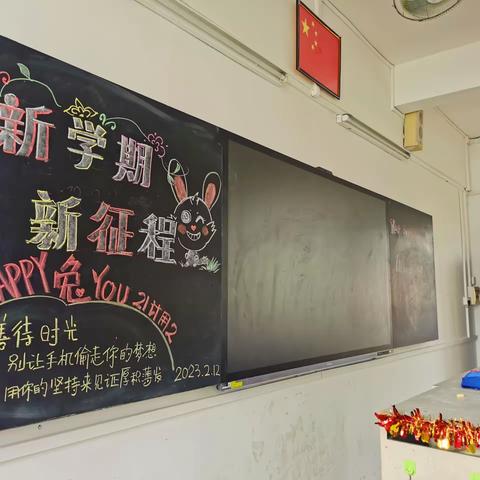 新学期
新征程
HAPPY兔YOU 21计用2
善待时光
别让手机偷走你的梦想
用你的坚持来见证厚积薄发
2023.2.12